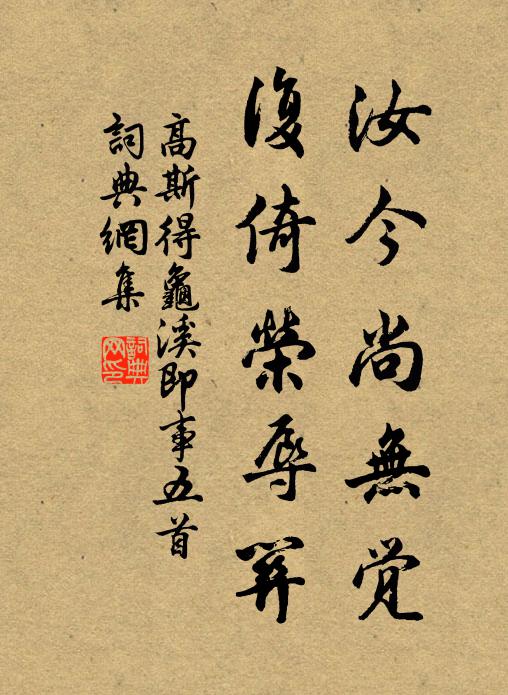 汝今尚無觉
復倚榮辱
高斯得龜溪即事五首
詞典網集
詞典
网印